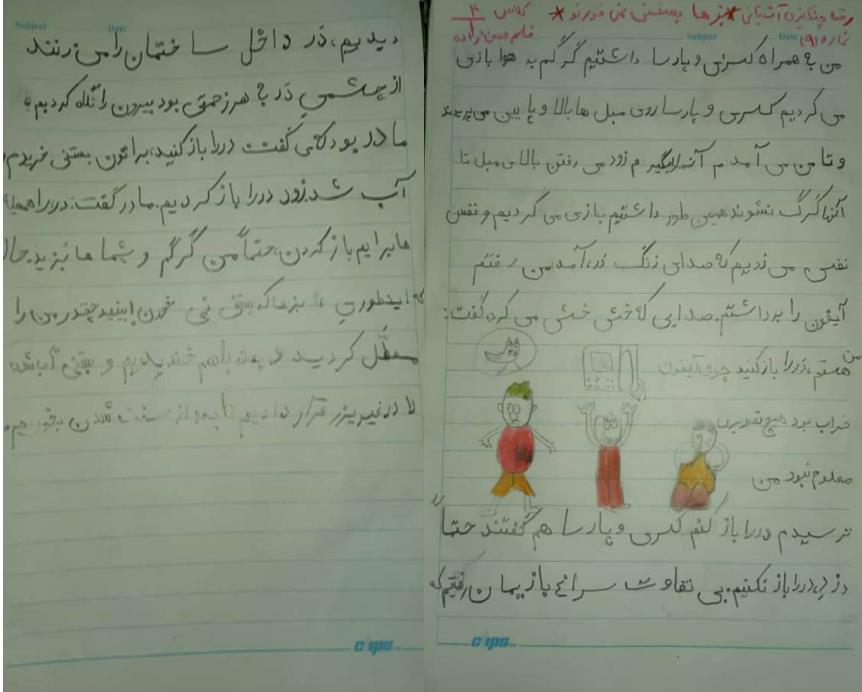 رضا چنگیزی آشتیانی * بزها بستنی نمی خورند * کلاس ۴
نماره (۹)
Subject Date
من به همراه کسری و پارسا داشتیم گرگم به هوا بازی
می کردیم کسری و پارسا روی مبل ها بالا و پایین می پریدند
و تا من می آمدم آنهارا بگیرم زود می رفتن بالای مبل تا
آنها گرگ نشوند همین طور داشتیم بازی می کردیم و نفس
نفس می زدیم که صدای زنگ در، آمد من رفتم
آیفون را برداشتم. صدایی که خش خش می کرد، گفت:
من هستم، در را باز کنید چون آیفون
خراب بود هیچ تصویری
معلوم نبود من
ترسیدم در را باز کنم کسری و پارسا هم گفتند حتماً
دزد، در را باز نکنیم. بی تفاوت سرا بازیمان رفتیم که
clips
Subject Date
دیدیم، در داخل ساختمان را می زنند
از چشمی در به هر زحمتی بود بیرون را نگاه کردیم
مادر بود که گفت در را باز کنید، براتون بستنی خریدم
آب شد. زود در را باز کردیم. مادر گفت: در را همسایه
ها برایم باز کردن، حتماً من گرگم و شما ها بُزید. حالا
که اینطوری بزها که بستنی نمی خورن ببینید چقدر من را
معطّل کردید و بعد باهم خندیدیم و بستنی آب شده
را در فریزر قرار دادیم تا بعد از سفت شدن بخوریم.
clips